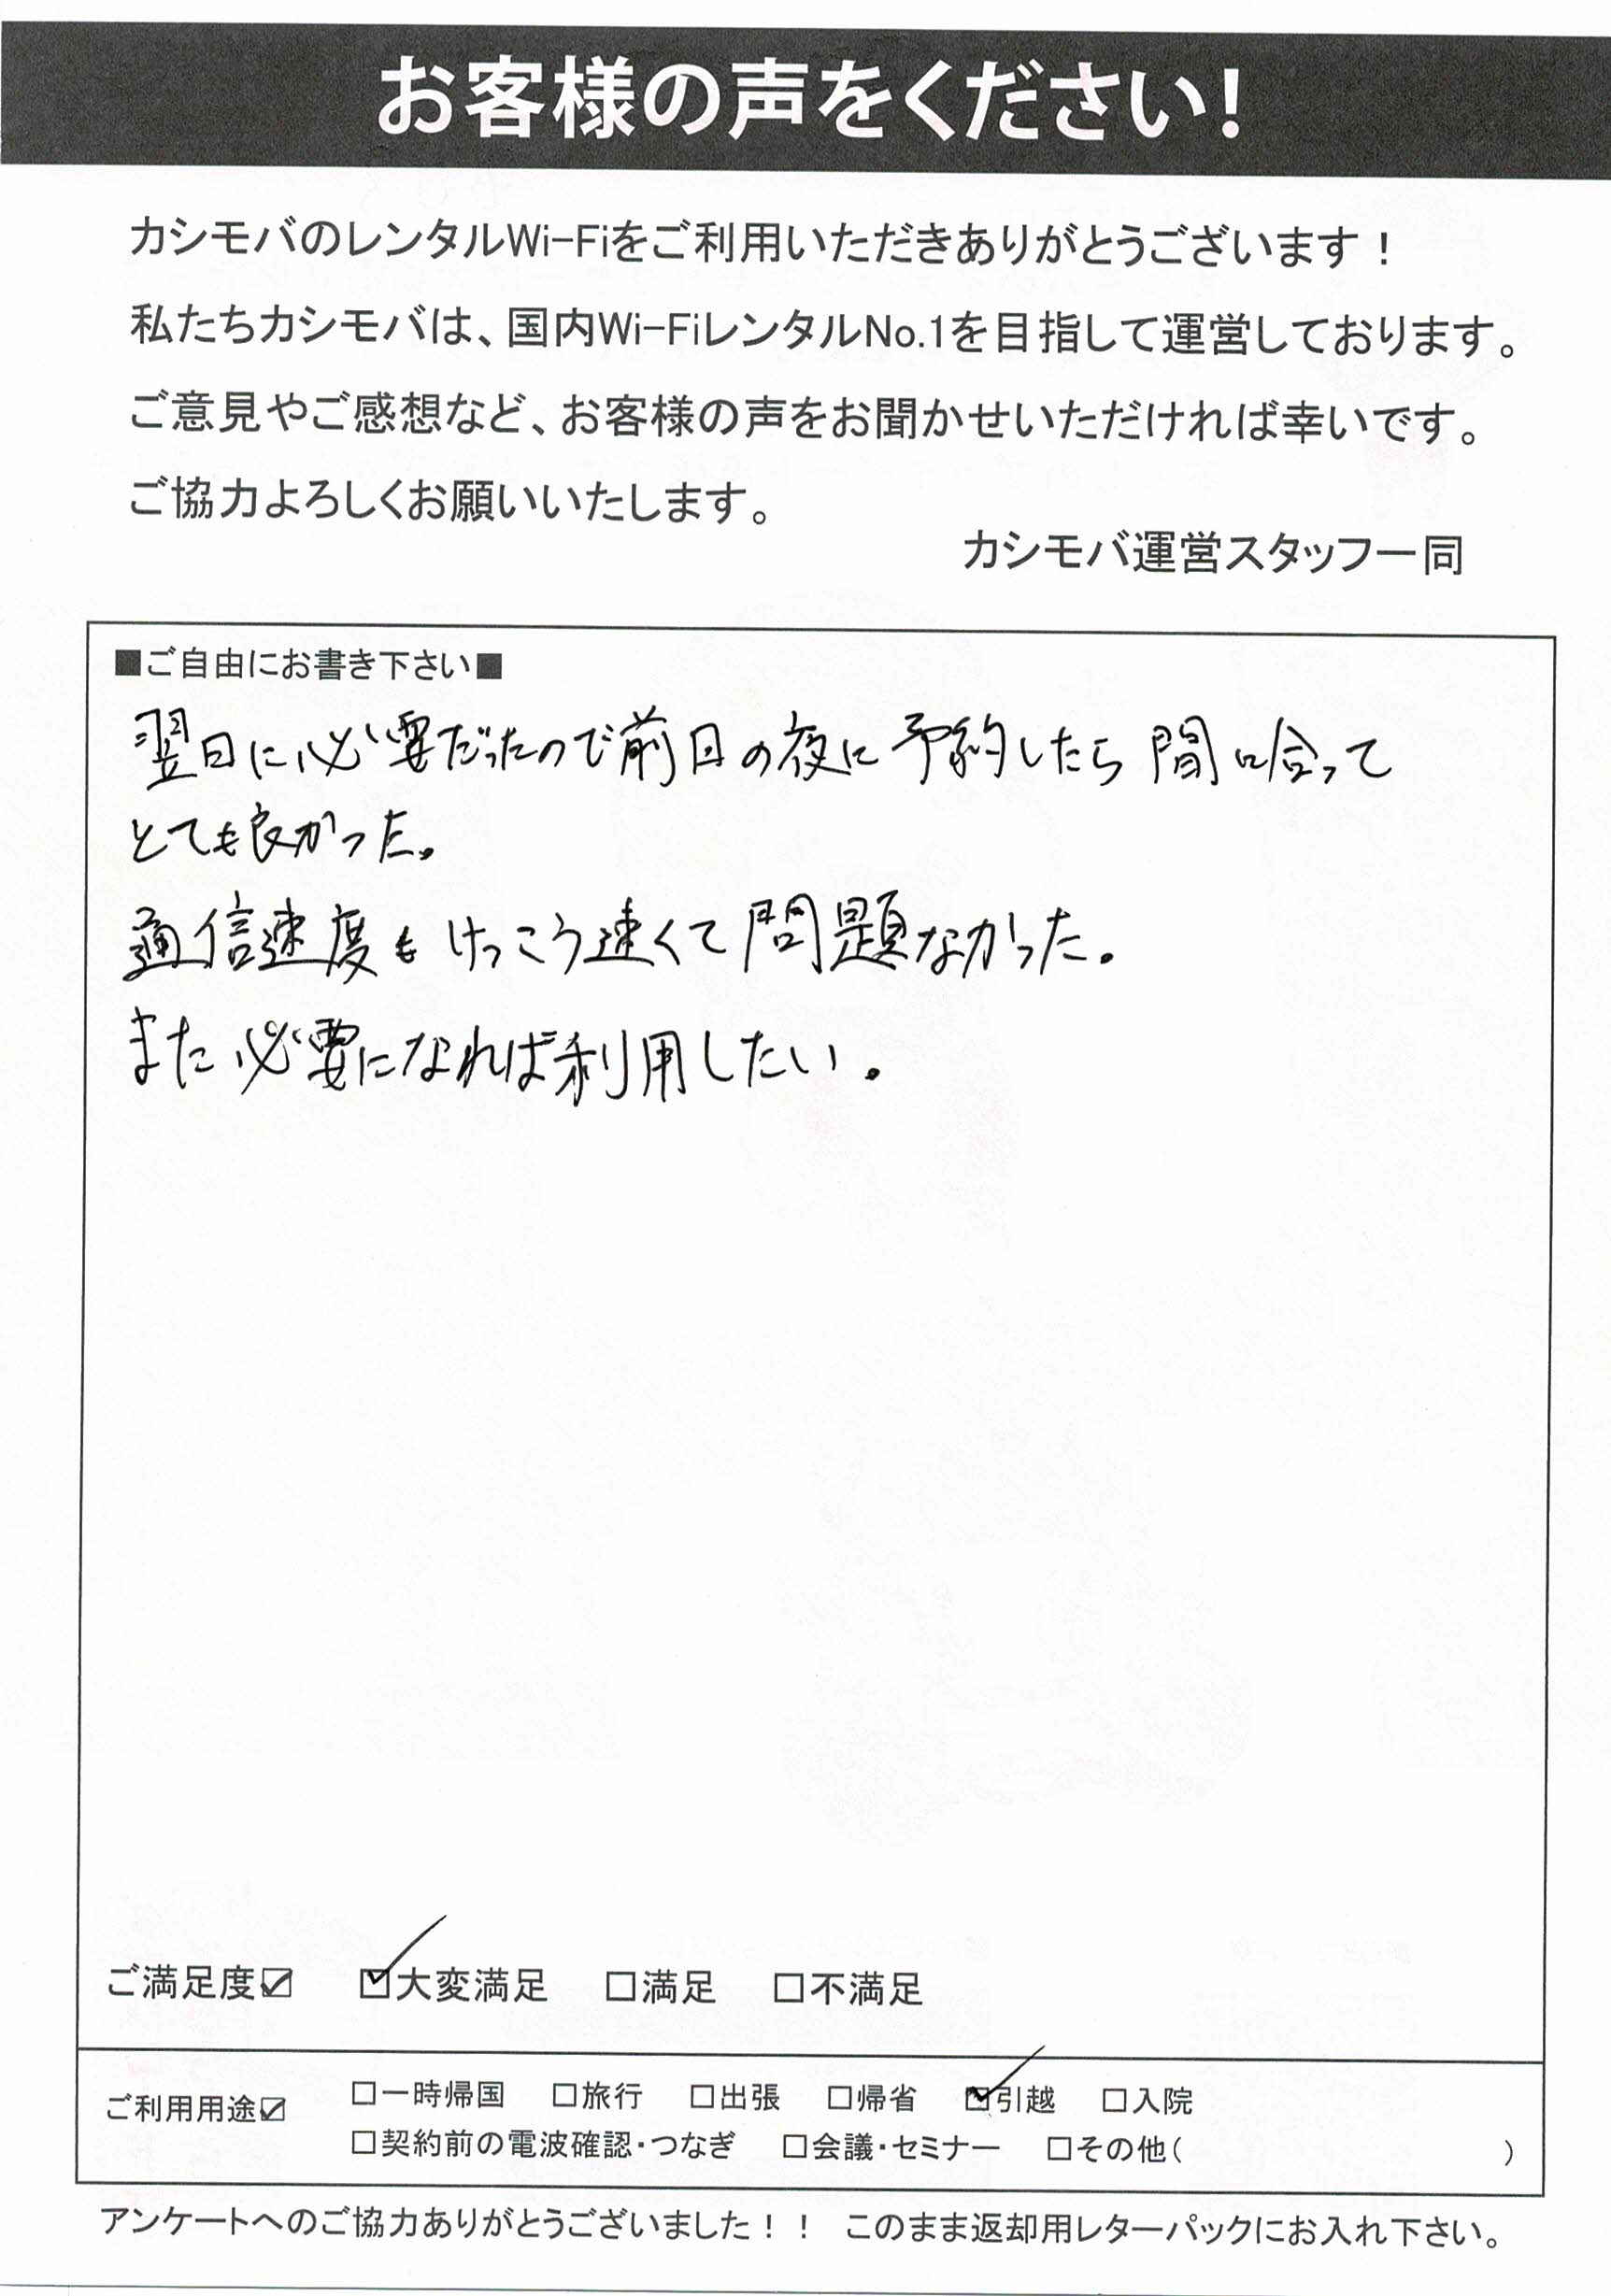 お客様の声をください!
カシモバのレンタルWi-Fiをご利用いただきありがとうございます！
私たちカシモバは、国内Wi-FiレンタルNo.1を目指して運営しております。
ご意見やご感想など、お客様の声をお聞かせいただければ幸いです。
ご協力よろしくお願いいたします。
カシモバ運営スタッフ一同
■ご自由にお書き下さい■
翌日に必要だったので前日の夜に予約したら間に合って
とても良かった。
通信速度もけっこう速くて問題なかった。
また必要になれば利用したい。
ご満足度☑ ☑大変満足 □満足 □不満足
ご利用用途☑ □一時帰国 □旅行 □出張 □帰省 ☑引越 □入院
□契約前の電波確認・つなぎ □会議・セミナー □その他( )
アンケートへのご協力ありがとうございました！！ このまま返却用レターパックにお入れ下さい。